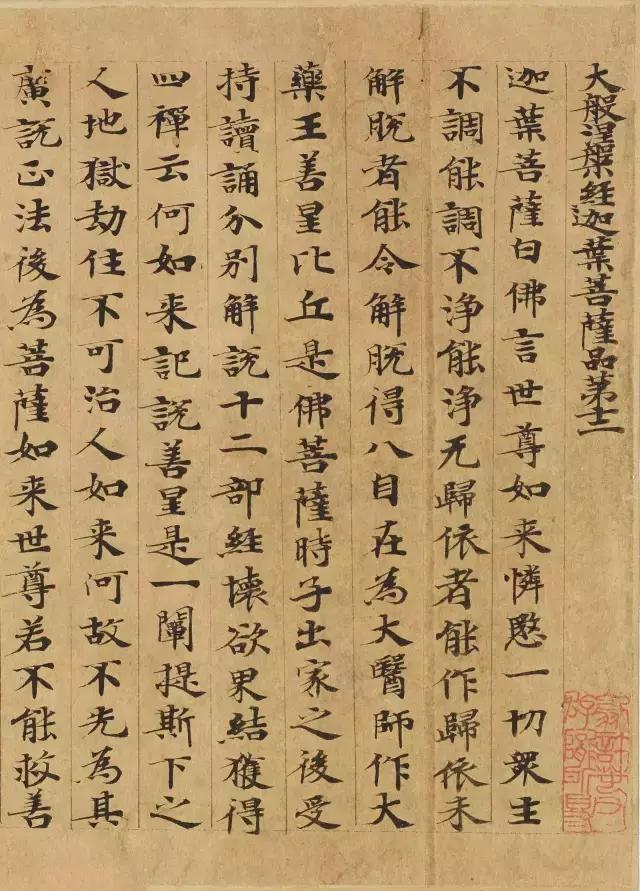 大般涅槃經迦葉菩薩品第十二
迦葉菩薩白佛言世尊如来憐愍一切衆生
不調能調不淨能淨无歸依者能作歸依未
解脱者能令解脱得八自在為大醫師作大
藥王善星比丘是佛菩薩時子出家之後受
持讀誦分别解說十二部經壞欲果結獲得
四禪云何如来記說善星是一闡提斯下之
人地獄劫住不可治人如来何故不先為其
廣說正法後為菩薩如来世尊若不能救善